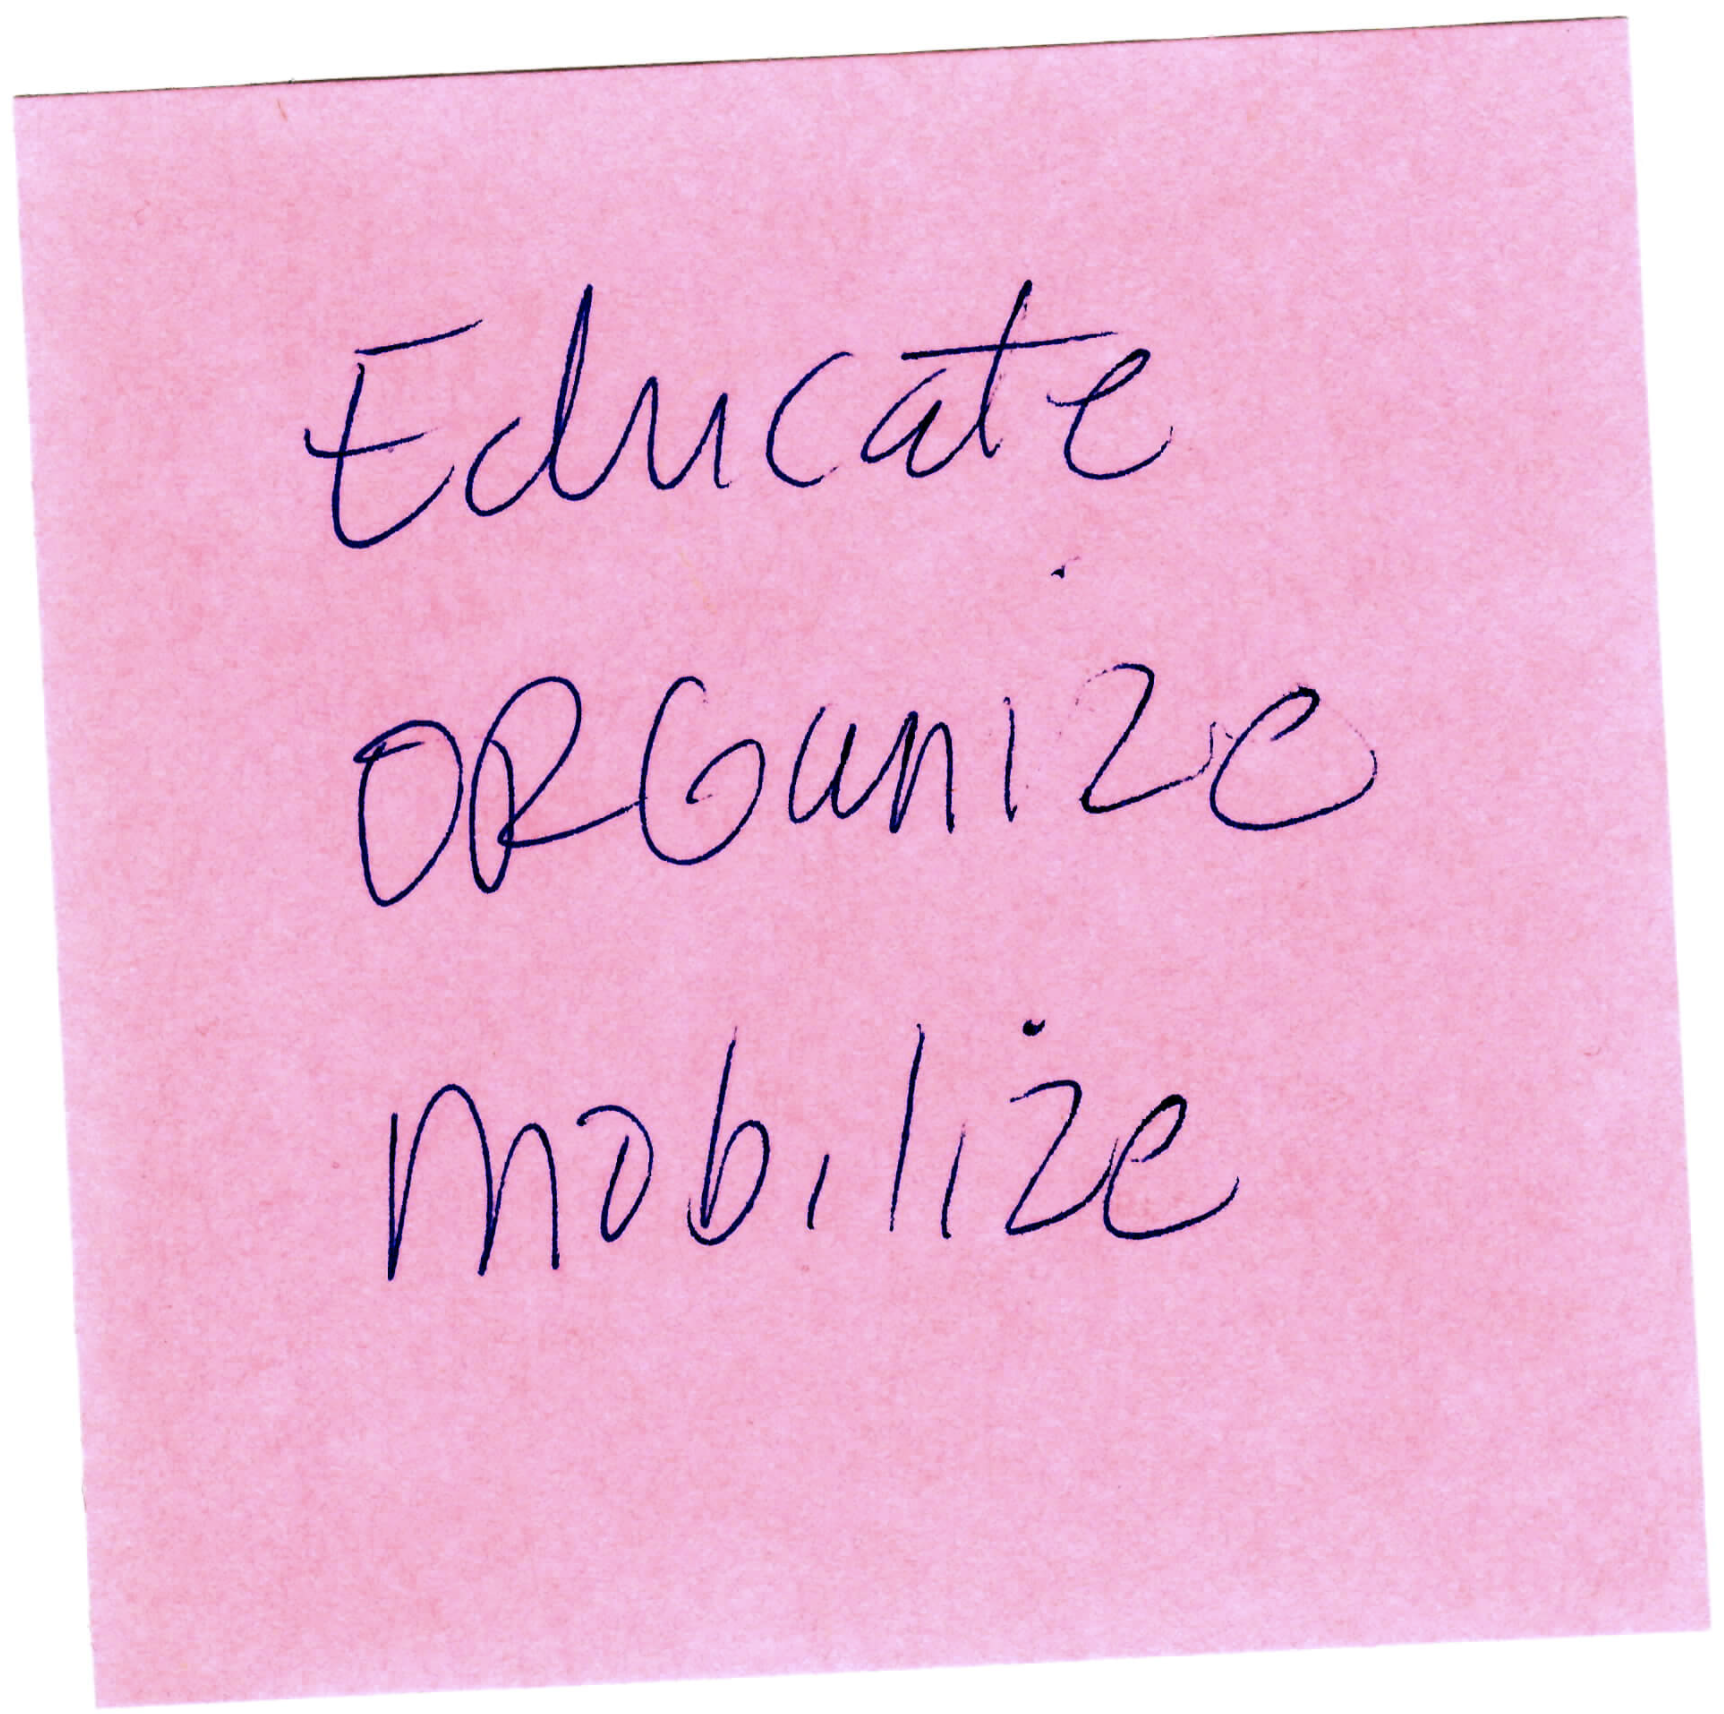 Educate
ORGanize
mobilize